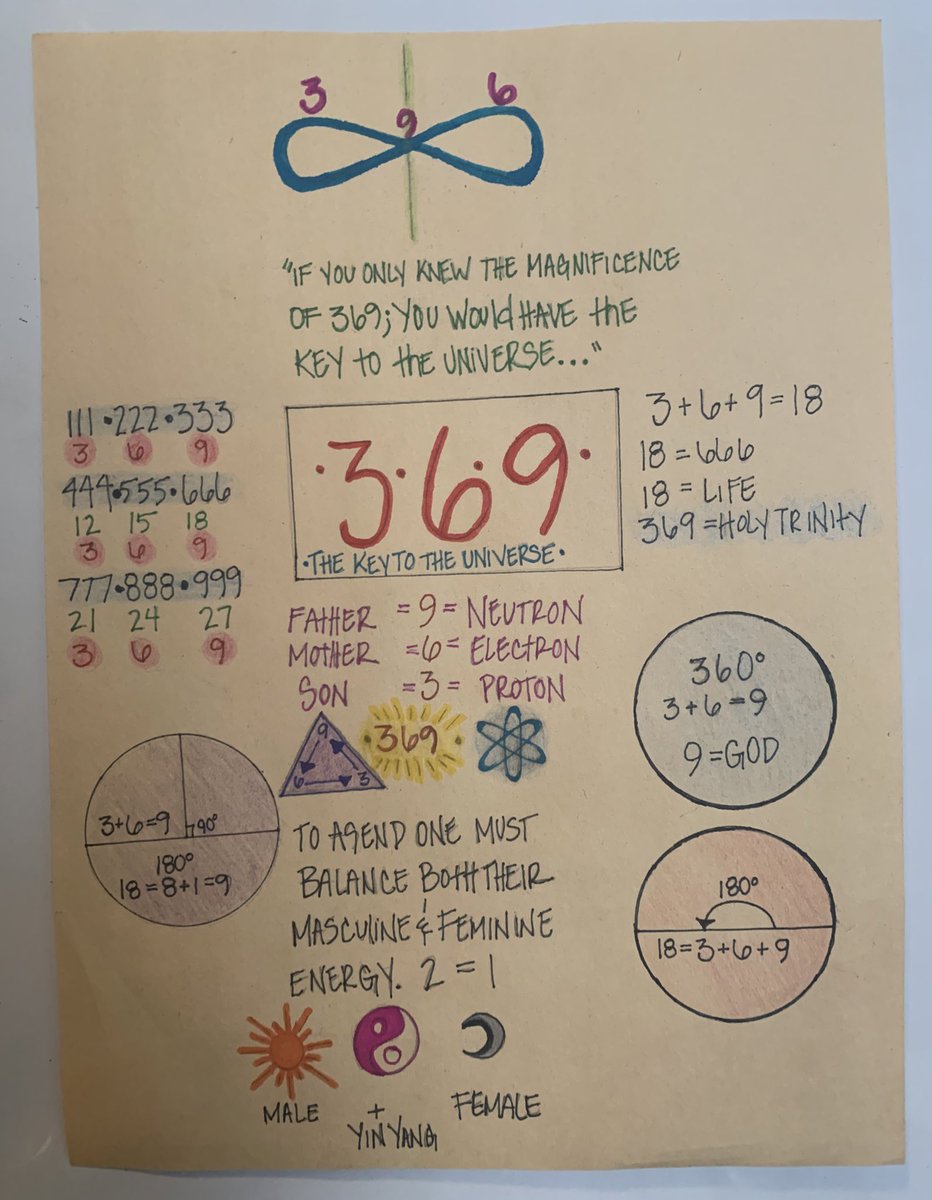 3 6
9
"IF YOU ONLY KNEW THE MAGNIFICENCE
OF 369; YOU WOULD HAVE THE
KEY TO THE UNIVERSE..."
111 • 222 • 333
3 6 9
444 • 555 • 666
12 15 18
3 6 9
777 • 888 • 999
21 24 27
3 6 9
•3•6•9•
•THE KEY TO THE UNIVERSE•
3+6+9=18
18=666
18=LIFE
369=HOLY TRINITY
FATHER =9= NEUTRON
MOTHER =6= ELECTRON
SON =3= PROTON
9
6 3
•369•
360°
3+6=9
9=GOD
3+6=9 90°
180°
18=8+1=9
TO ASEND ONE MUST
BALANCE BOTH THEIR
MASCULINE & FEMININE
ENERGY. 2=1
180°
18=3+6+9
MALE + FEMALE
YIN YANG